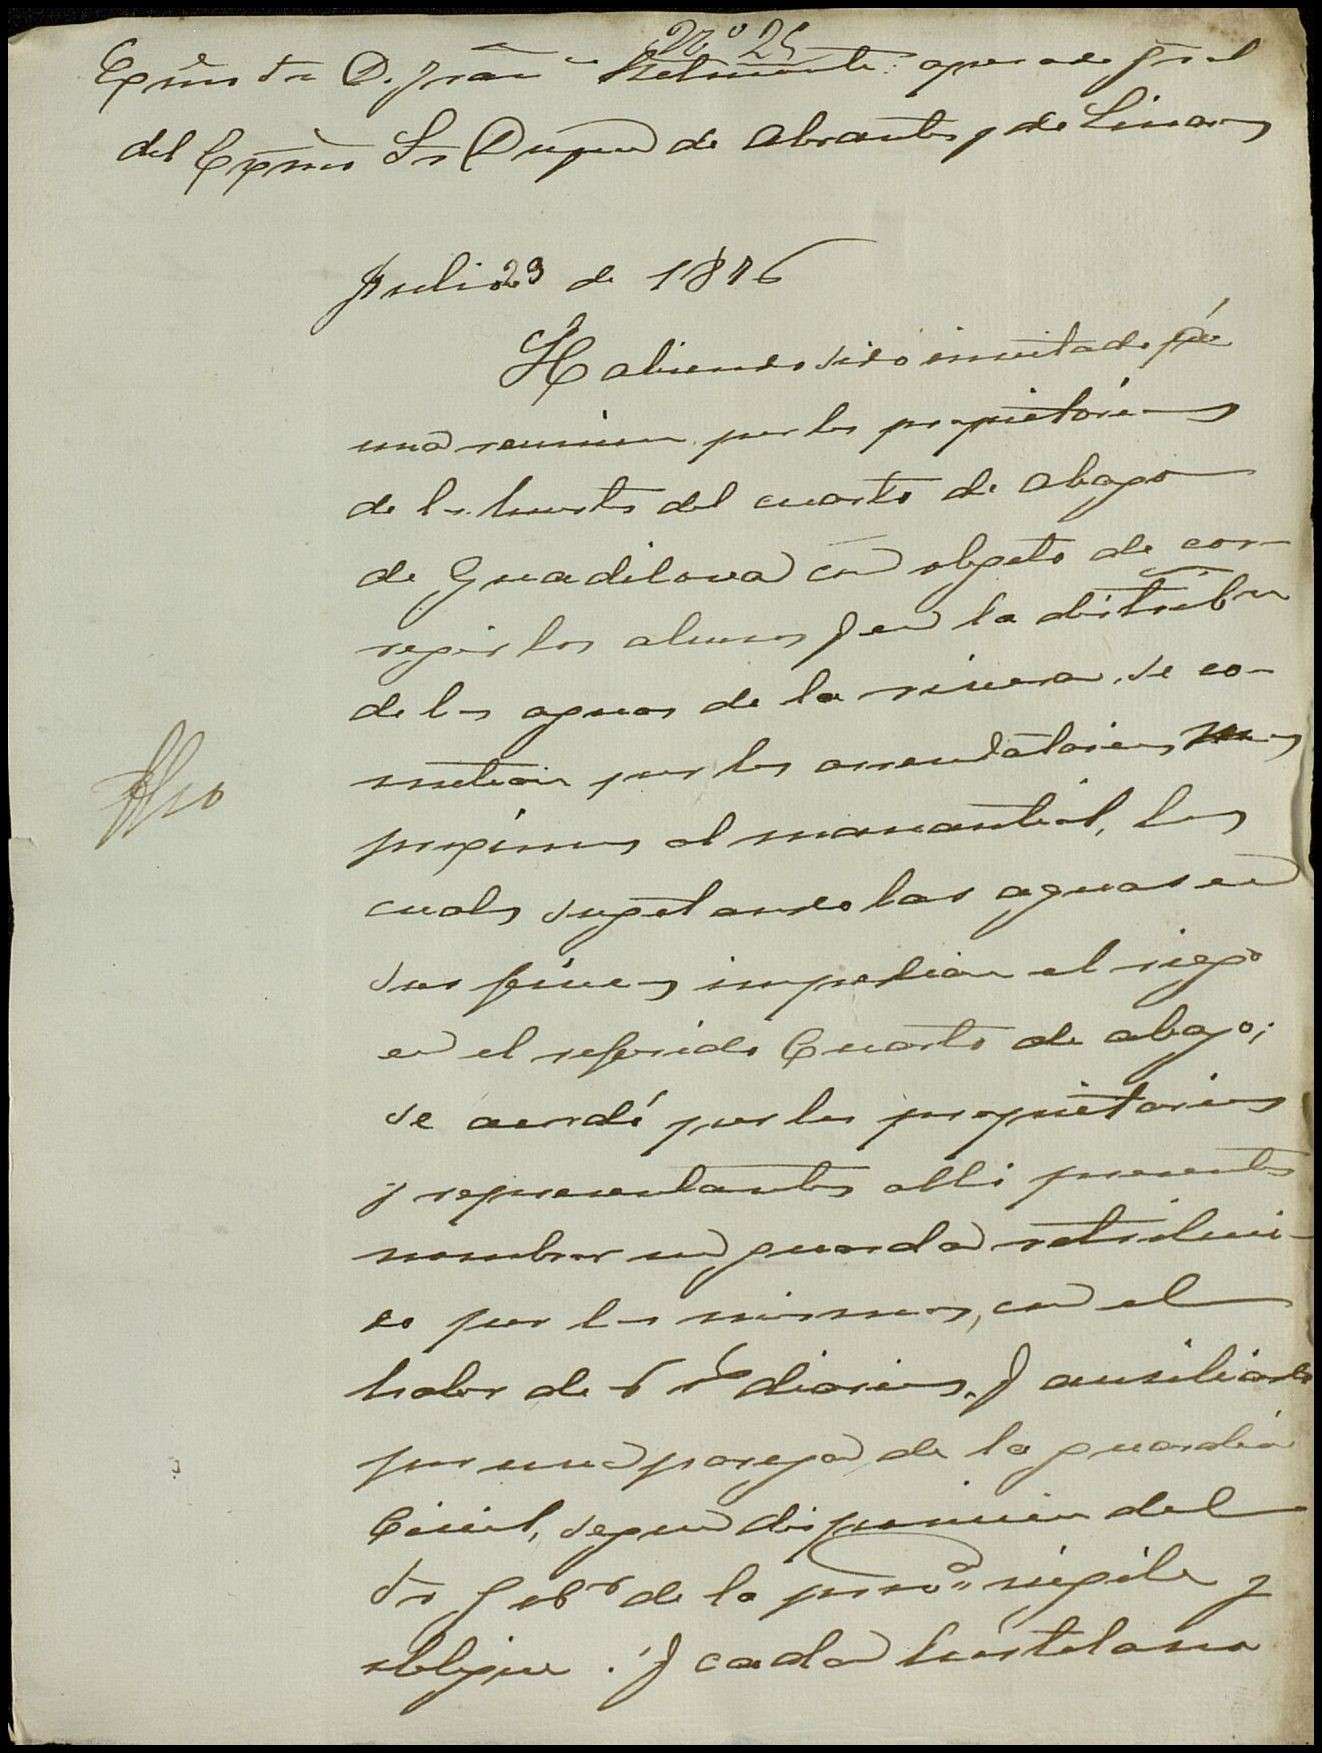 Nº 25
Exmo Sr D. Franco Belmonte apoderado gral
del Exmo Sr Duque de Abrantes y de Linares
Julio 23 de 1876
Habiendo sido invitado pa
una reunion por los propietarios
de las huertas del cuarto de abajo
de Guadilova con objeto de cor-
regir los abusos q en la distribn
de las aguas de la rivera, se co-
metian por los arrendatarios mas
proximos al manantial, los
cuales sugetando las aguas en
sus fincas impedian el riego
en el referido Cuarto de abajo;
se acordó por los propietarios
y representantes alli presentes
nombrar un guarda retribui-
do por los mismos, con el
haber de 6 rs diarios, q auxiliado
por una pareja de la guardia
Civil, segun disposicion del
Sr Gobr de la prova vigile y
obligue q cada hortelano